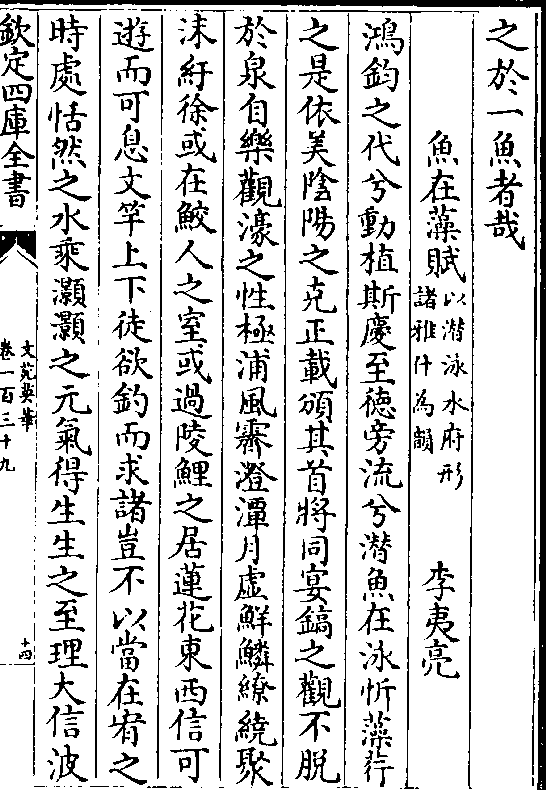 之於一魚者哉
魚在藻賦以潛泳水府形諸雅什為韻 李夷亮
鴻鈞之代兮動植斯慶至徳旁流兮潛魚在泳忻藻荇
之是依美陰陽之克正載頒其首將同宴鎬之觀不脱
於泉自樂觀濠之性極浦風霽澄潭月虛鮮鱗繚繞聚
沫紆徐或在鮫人之室或過陵鯉之居蓮花東西信可
遊而可息文竿上下徒欲釣而求諸豈不以當在宥之
時處恬然之水乘灝灝之元氣得生生之至理大信波
欽定四庫全書
文苑英華
卷一百三十九
十四